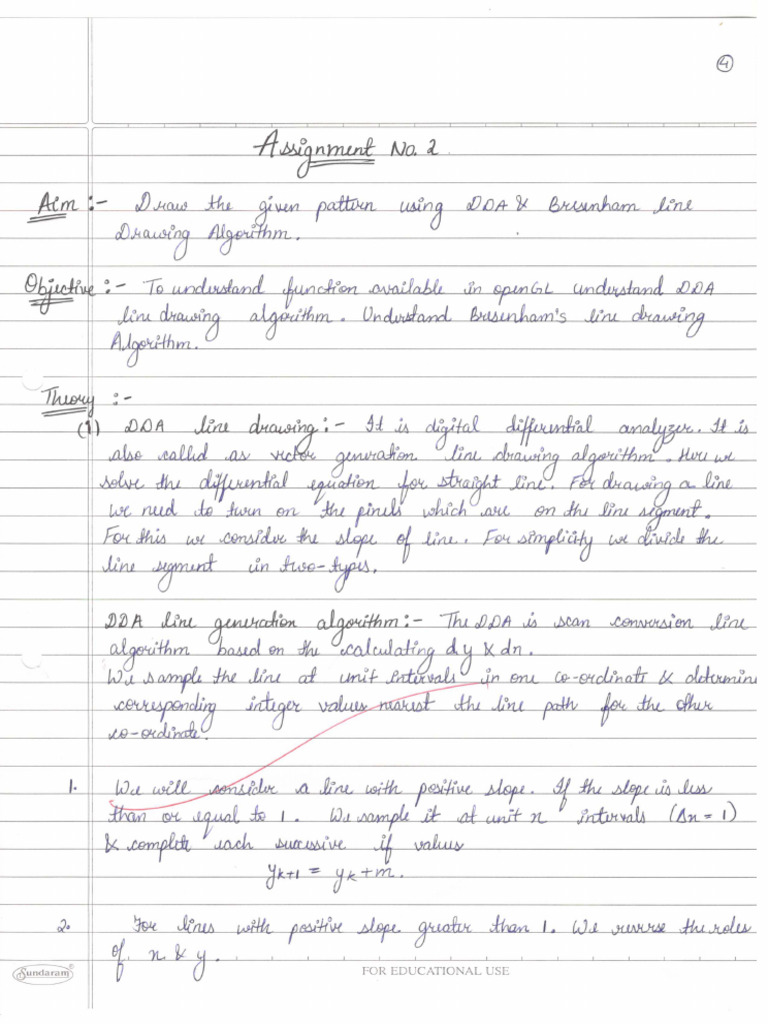 4
Assignment No. 2
Aim :- Draw the given pattern using DDA & Bresenham line
Drawing Algorithm.
Objective :- To understand function available in openGL understand DDA
line drawing algorithm. Understand Bresenham's line drawing
Algorithm.
Theory :-
(1) DDA line drawing :- It is digital differential analyzer. It is
also called as vector generation line drawing algorithm. Here we
solve the differential equation for straight line. For drawing a line
we need to turn on the pixels which are on the line segment.
For this we consider the slope of line. For simplicity we divide the
line segment in two-types.
DDA line generation algorithm :- The DDA is scan conversion line
algorithm based on the calculating dy & dx.
We sample the line at unit intervals in one co-ordinate & determine
corresponding integer values nearest the line path for the other
co-ordinate.
1. We will consider a line with positive slope. If the slope is less
than or equal to 1. We sample it at unit x intervals (Δx = 1)
& complete each successive if values
yk+1 = yk + m.
2. For lines with positive slope greater than 1. We reverse the roles
of x & y.
Sundaram
FOR EDUCATIONAL USE